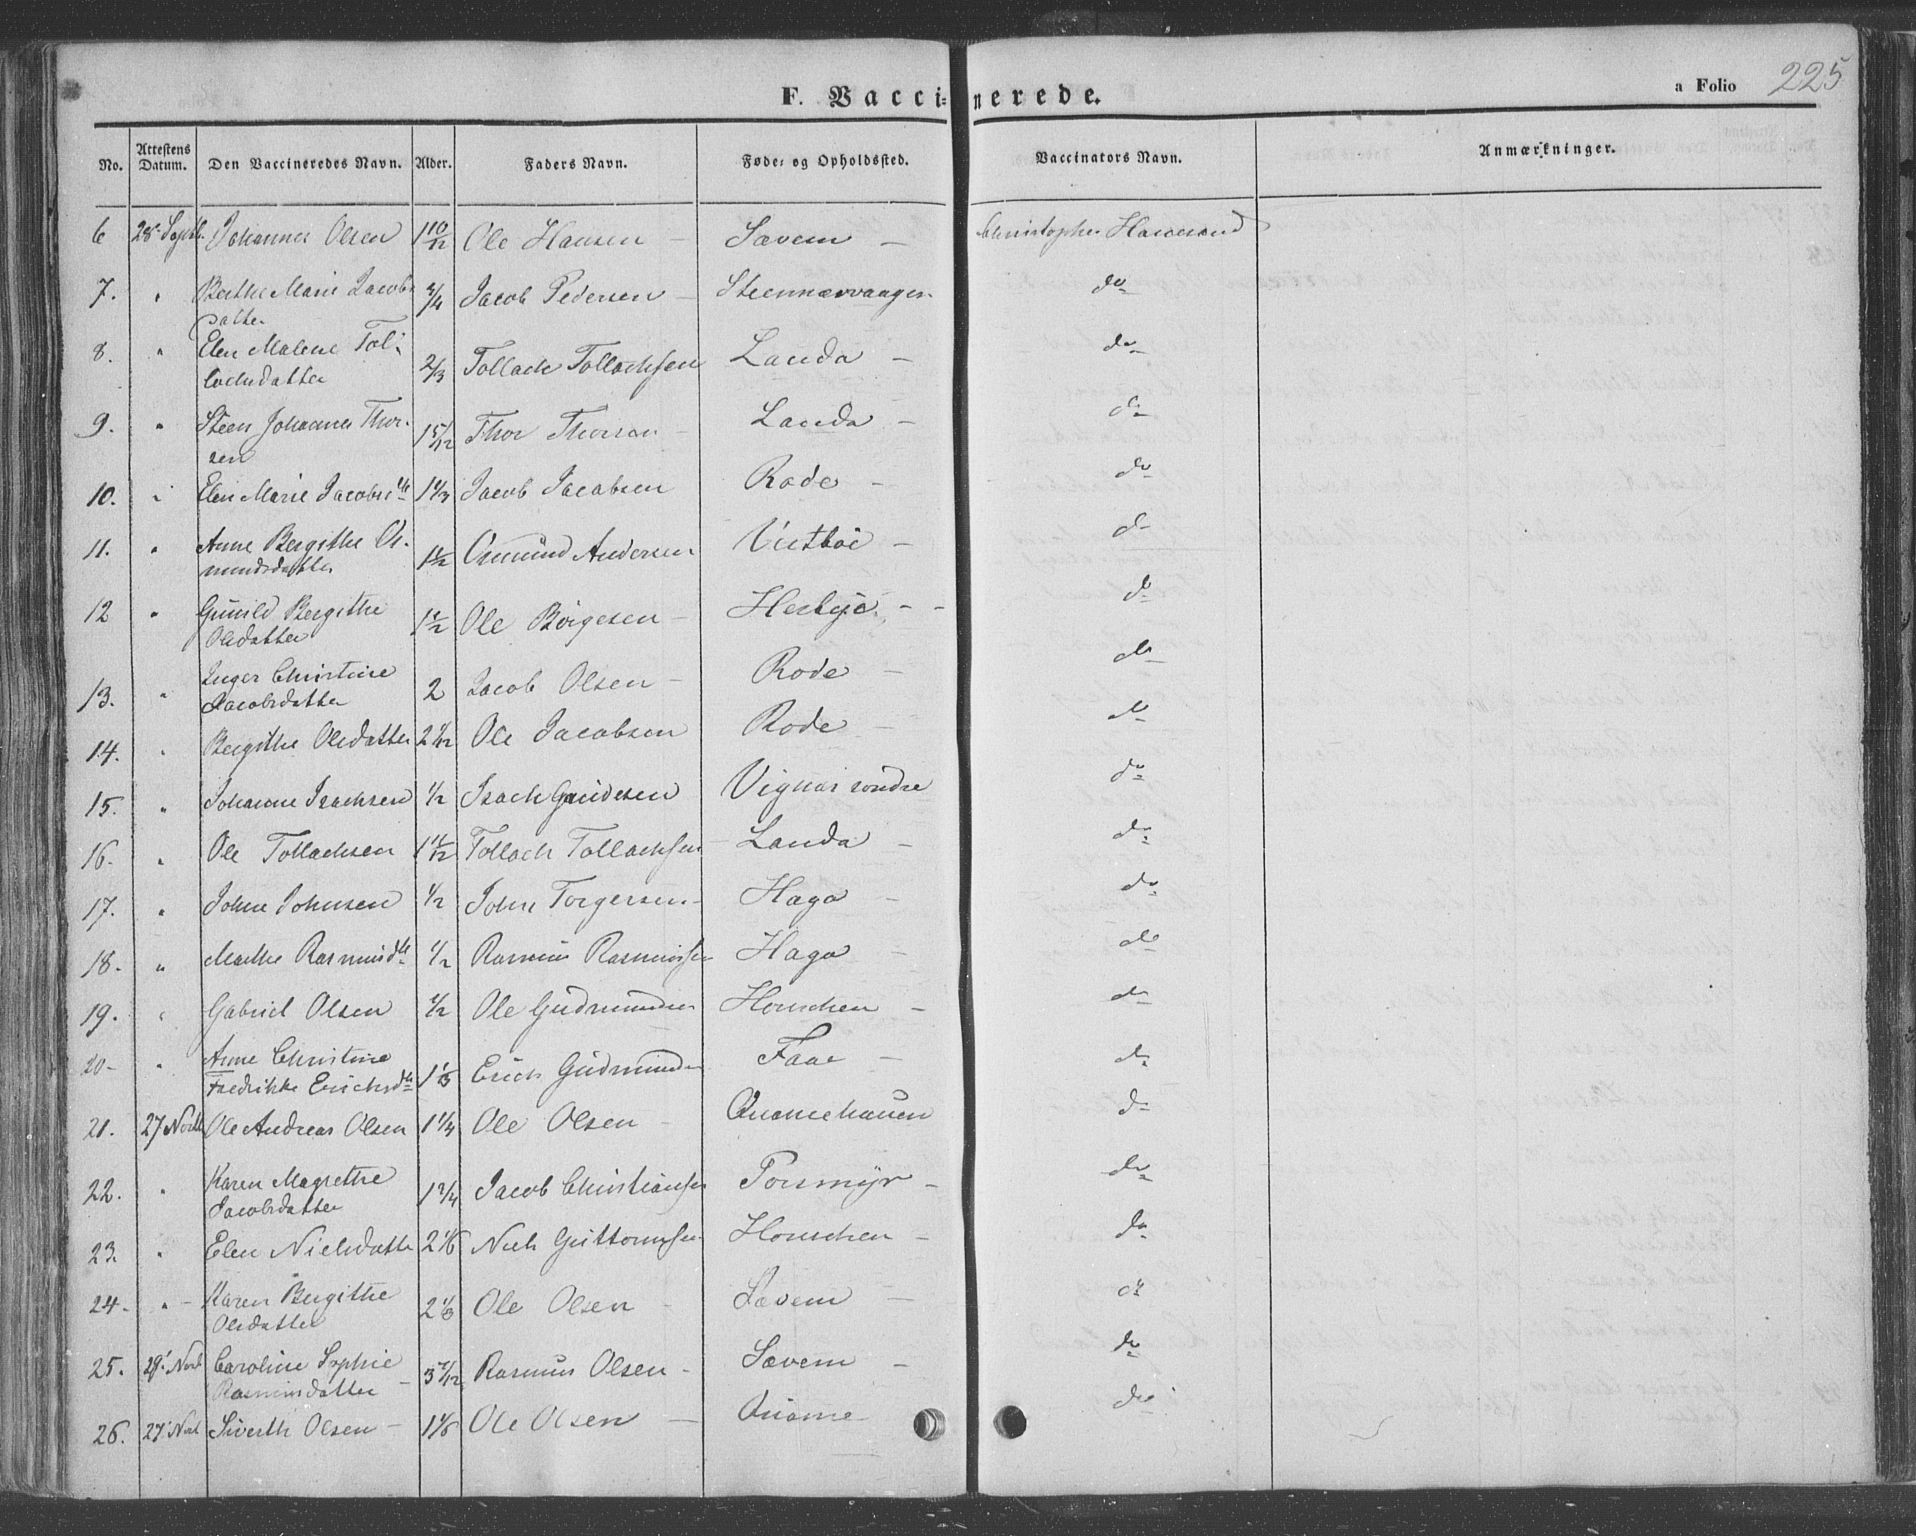 F. Vaccinerede.
a Folio 225
No. Attestens Datum. Den Vaccineredes Navn. Alder. Faders Navn. Føde- og Opholdssted. Vaccinators Navn. Anmærkninger.
6 28 Septbr. Johannes Olsen 1 10/12 Ole Hansen – Sævem – Christopher
7. " Berthe Marie Jacobs 3/4 Jacob Pedersen – do
datter
8. " Elen Malene Tol- 2/3 Tollach Tollachsen Landa – do
lachsdatter
9. " Steen Johannes Thor- 1 5/12 Thor Thorsen – Landa – do
sen
10. " Elen Marie Jacobsdtr 1 1/3 Jacob Jacobsen Rode – do
11. " Anne Bergithe Os- 1 1/2 Osmund Andersen Vestbøe – do
mundsdatter
12 " Gunild Bergithe 1 1/2 Ole Børgesen – do
Olsdatter
13. " Inger Christine 2 Jacob Olsen – Rode – do
Jacobsdatter
14. " Bergithe Olsdatter 2 1/12 Ole Jacobsen Rode – do
15. " Johanne Isachsen 1/2 Isach Gundesen Vignæs søndre do
16. " Ole Tollachsen 1 11/12 Tollach Tollachsen Landa – do
17. " John Johnsen 1/2 John Torgersen – Haga – do
18. " Marthe Rasmusdtr 1/2 Rasmus Rasmussen Haga – do
19. " Gabriel Olsen 1/2 Ole Gudmundsen Honschen – do
20 – " Anne Christine 1 1/3 Erich Gudmundsen Faae – do
Fredrikke Erichsdtr
21. 27 Novbr Ole Andreas Olsen 1 1/4 Ole Olsen – Qvamehaven do
22. " Karen Magrethe 1 3/4 Jacob Christiansen Torsmyr – do
Jacobsdatter
23. " Elen Nielsdatter 2 1/6 Niels Guttormsen Honschen – do
24 – " – Karen Bergithe 2 1/3 Ole Olsen – Sævem – do
Olsdatter
25. 29 Novb Caroline Sophie 3 7/12 Rasmus Olsen – Sævem – do
Rasmusdatter –
26. 27 Novb Siverth Olsen – 1 1/6 Ole Olsen – Qvame – do